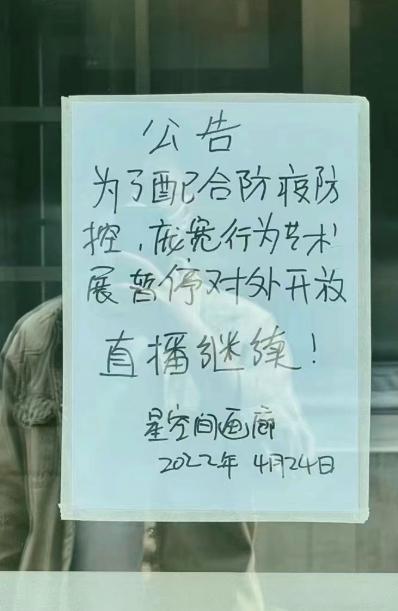 公告
为了配合防疫防
控，庞宽行为艺术
展暂停对外开放
直播继续！
星空间画廊
2022年 4月24日